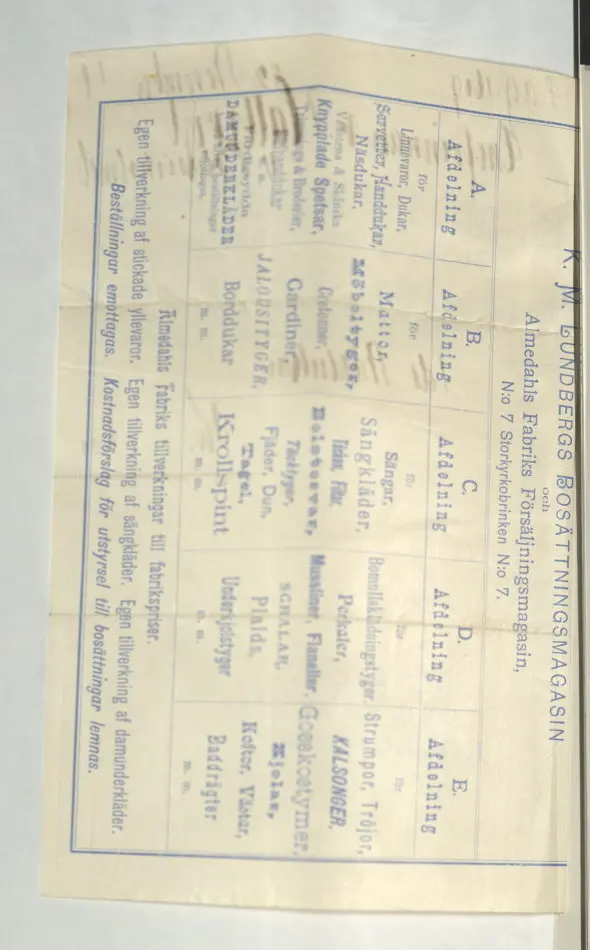 K. M. LUNDBERGS BOSÄTTNINGSMAGASIN
och
Almedahls Fabriks Försäljningsmagasin,
N:o 7 Storkyrkobrinken N:o 7.
A.
Afdelning
för
Linnevaror, Dukar,
Servetter, Handdukar,
Näsdukar,
Knypplade Spetsar,
DAMUNDERKLÄDER
B.
Afdelning
för
Mattor,
Möbeltyger,
Cretonner,
Gardiner,
JALOUSITYGER,
Borddukar
m. m.
C.
Afdelning
för
Sängar,
Sängkläder,
Bolstervar,
Täcktyger,
Fjäder, Dun,
Tagel,
Krollspint
m. m.
D.
Afdelning
för
Bomullsklädningstyger,
Perkaler,
Mussliner, Flaneller,
SCHALAR,
Plaids,
Underkjolstyger
m. m.
E.
Afdelning
för
Strumpor, Tröjor,
KALSONGER,
Gosskostymer,
Kjolar,
Koftor, Västar,
Baddrägter
m. m.
Almedahls Fabriks tillverkningar till fabrikspriser.
Egen tillverkning af stickade yllevaror. Egen tillverkning af sängkläder. Egen tillverkning af damunderkläder.
Beställningar emottagas. Kostnadsförslag för utstyrsel till bosättningar lemnas.